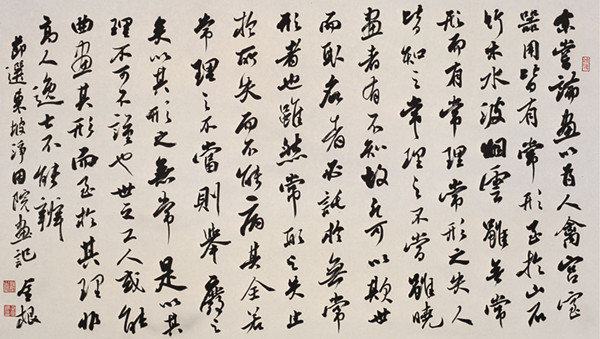 余嘗論畫以為人禽宮室
器用皆有常形至於山石
竹木水波烟雲雖無常
形而有常理常形之失人
皆知之常理之不當雖曉
畫者有不知故凡可以欺世
而取名者必託於無常
形者也雖然常形之失止
於所失而不能病其全若
常理之不當則舉廢之
矣以其形之無常是以其
理不可不謹也世之工人或能
曲盡其形而至於其理非
高人逸士不能辨
節選東坡淨因院畫記